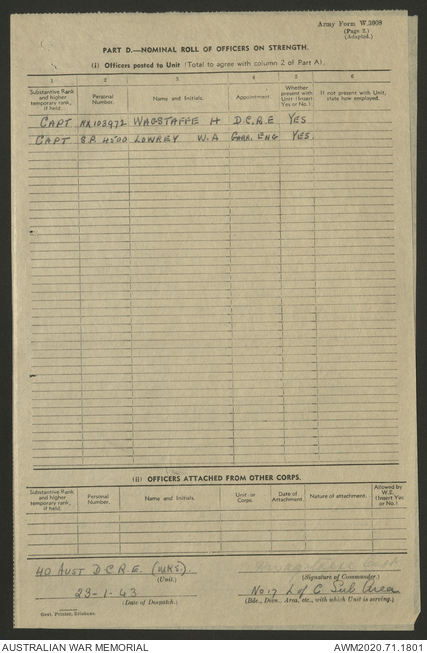 Army Form W.3008
(Page 2.)
(Adapted.)
PART D.—NOMINAL ROLL OF OFFICERS ON STRENGTH.
(i) Officers posted to Unit (Total to agree with column 2 of Part A).
1 2 3 4 5 6
Substantive Rank and higher temporary rank, if held. Personal Number. Name and Initials. Appointment. Whether present with Unit (Insert Yes or No.) If not present with Unit, state how employed.
CAPT NX103972 WAGSTAFFE H D.C.R.E YES
CAPT S.P. 4500 LOWREY W.A GARR. ENG YES.
(ii) OFFICERS ATTACHED FROM OTHER CORPS.
Substantive Rank and higher temporary rank, if held. Personal Number. Name and Initials. Unit or Corps. Date of Attachment. Nature of attachment. Allowed by W.E. (Insert Yes or No.)
40 AUST D.C.R.E. (WKS).
(Unit.) (Signature of Commander.)
23-1-43 No. 17 L of C. Sub Area
(Date of Despatch.) (Bde., Divn., Area, etc., with which Unit is serving.)
Govt. Printer, Brisbane.
AUSTRALIAN WAR MEMORIAL AWM2020.71.1801